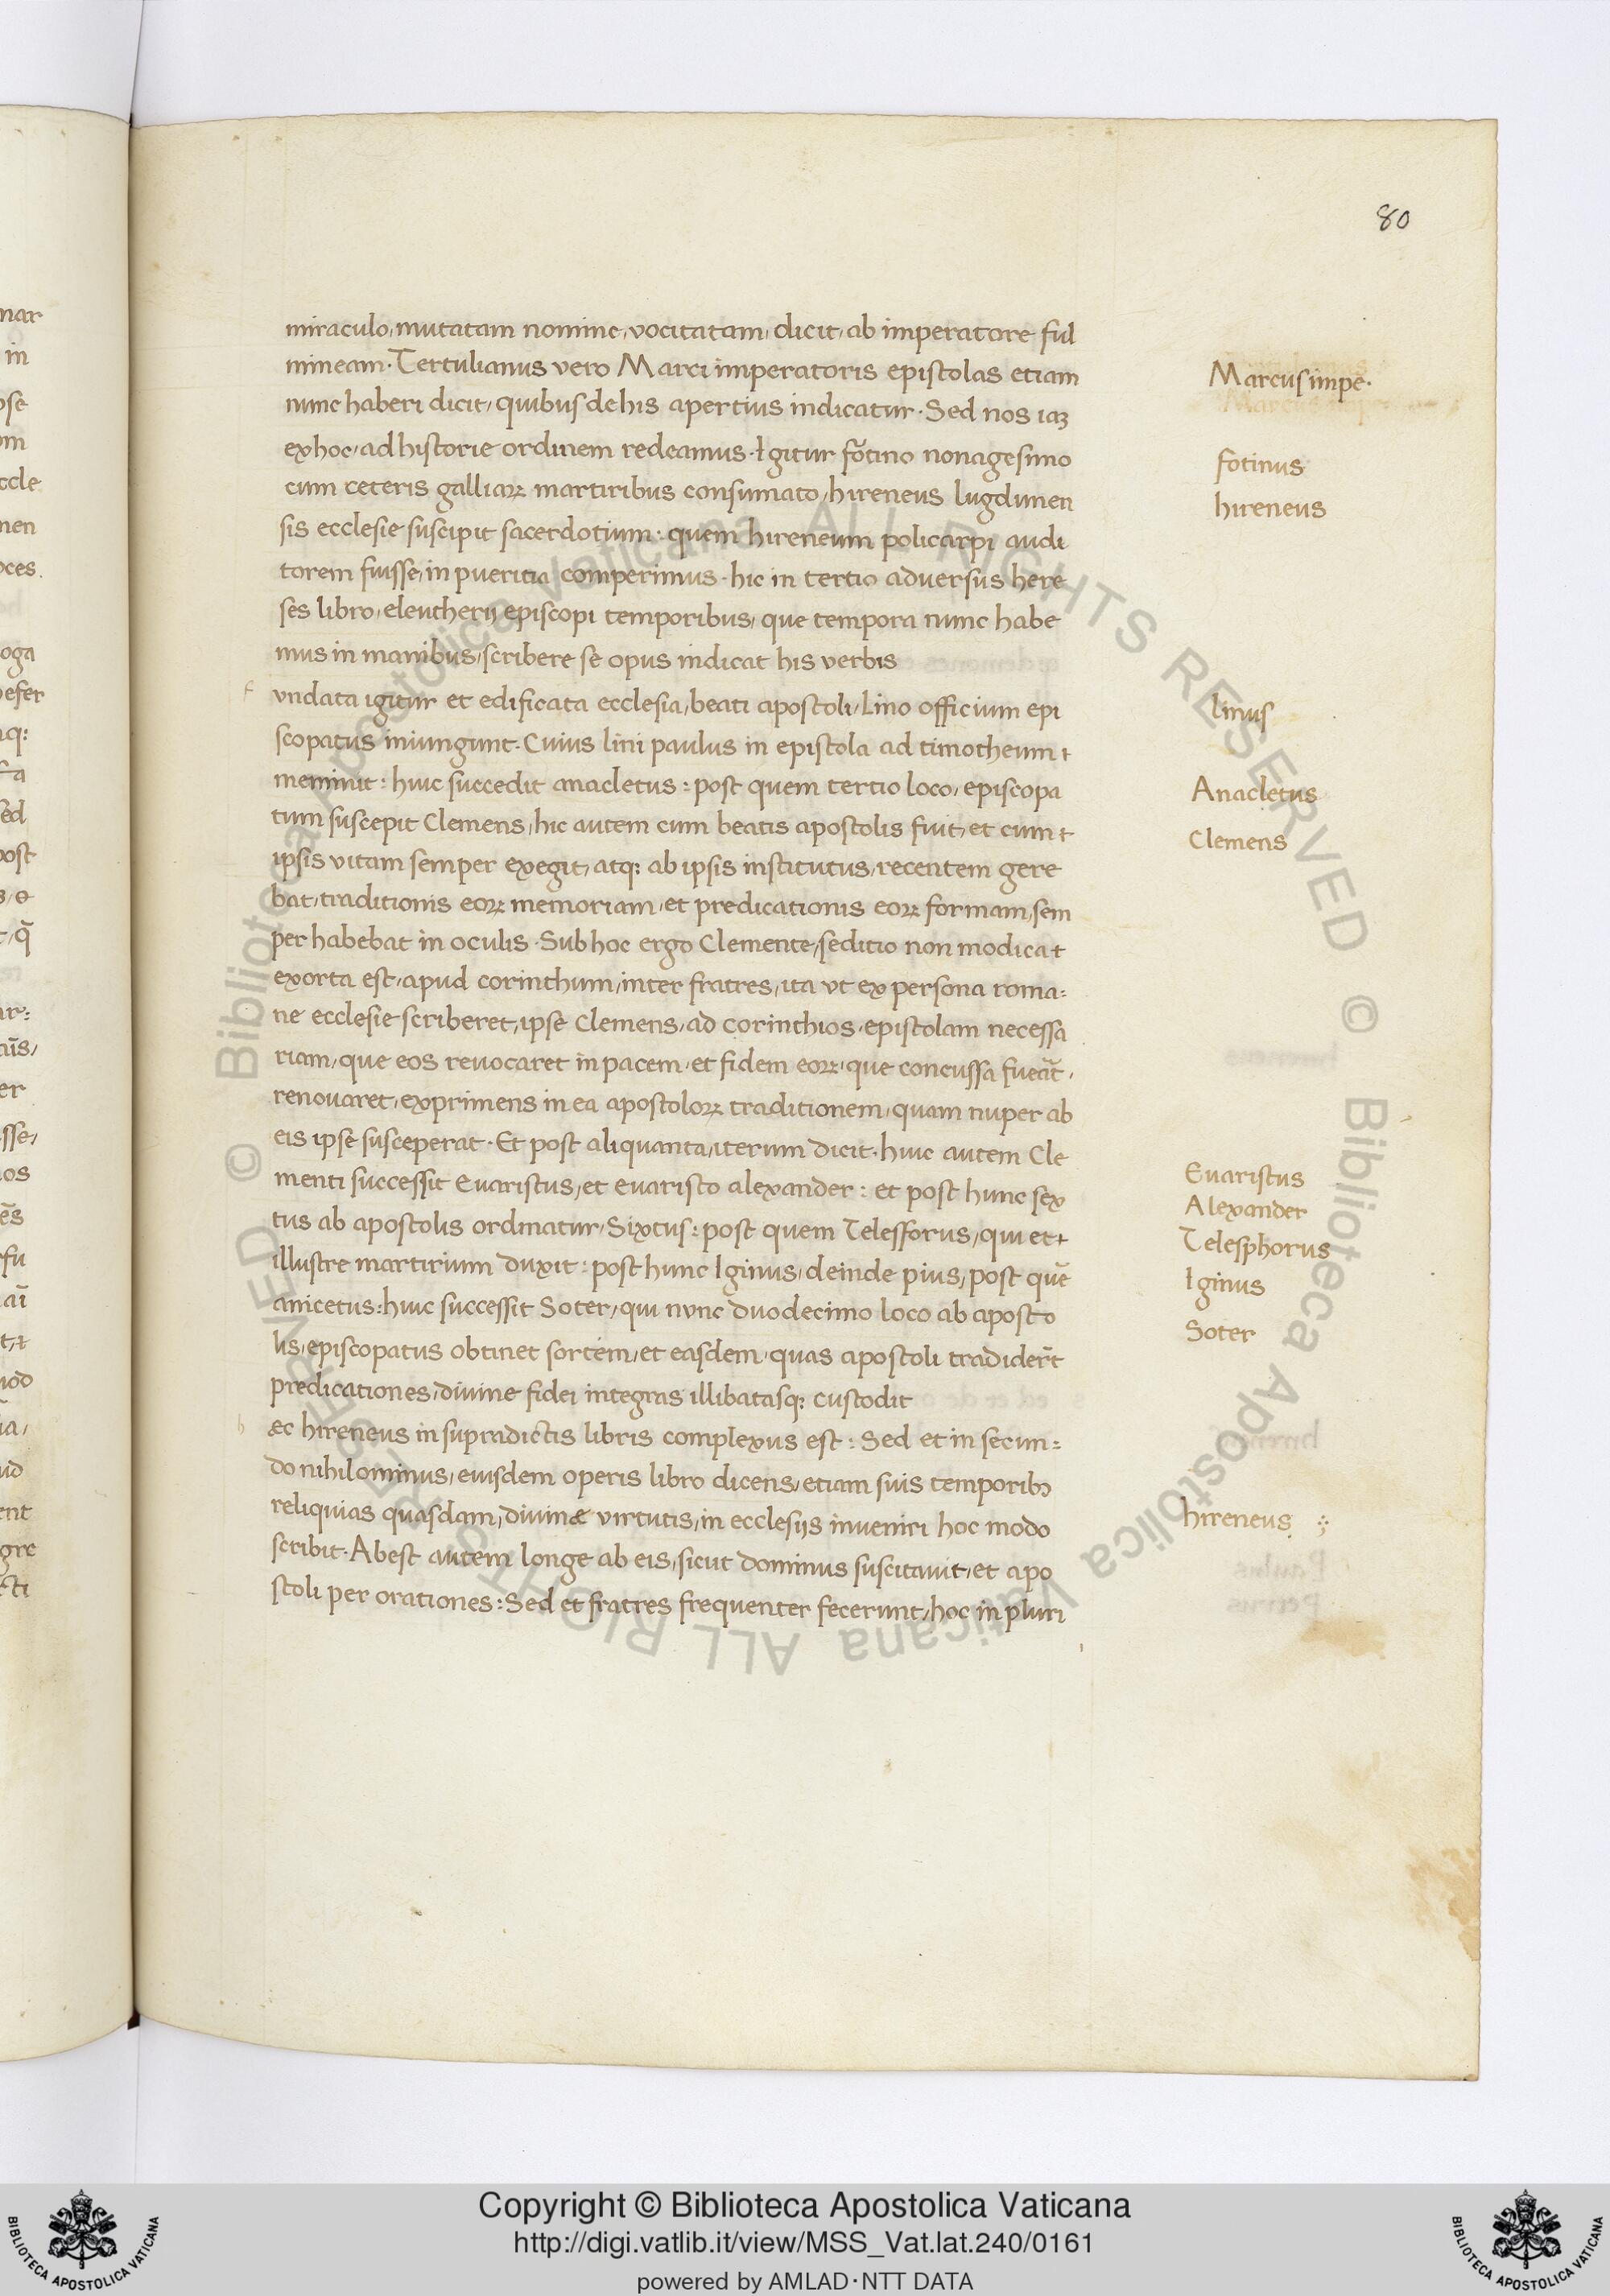 80
miraculo, mutatam nomine, vocitatam, dicit, ab imperatore ful
mineam. Tertulianus vero Marci imperatoris epistolas etiam
nunc haberi dicit, quibus de his apertius indicatur. Sed nos iaꝫ
ex hoc, ad historie ordinem redeamus. Igitur fōtino nonagesimo
cum ceteris galliaꝝ martiribus consumato, hireneus lugdunen
sis ecclesie suscipit sacerdotium: quem hireneum policarpi audi
torem fuisse, in pueritia comperimus. hic in tertio adversus here
ses libro, eleutherij episcopi temporibus, que tempora nunc habe
mus in manibus, scribere se opus indicat his verbis
f vndata igitur et edificata ecclesia, beati apostoli, Lino officium epi
scopatus iniungunt. Cuius lini paulus in epistola ad timotheum
meminit: huic succedit anacletus: post quem tertio loco, episcopa
tum suscepit Clemens, hic autem cum beatis apostolis fuit, et cum
ipsis vitam semper exegit, atq: ab ipsis institutus, recentem gere
bat, traditionis eoꝝ memoriam, et predicationis eoꝝ formam, sem
per habebat in oculis. Sub hoc ergo Clemente, seditio non modica
exorta est, apud corinthum, inter fratres, ita vt ex persona roma:
ne ecclesie scriberet, ipse Clemens, ad corinthios, epistolam necessa
riam, que eos revocaret in pacem, et fidem eoꝝ, que concussa fueāt,
renovaret, exprimens in ea apostoloꝝ traditionem, quam nuper ab
eis ipse susceperat. Et post aliquanta, iterum dicit. huic autem Cle
menti successit Evaristus, et evaristo alexander: et post hunc sex
tus ab apostolis ordinatur, Sixtus: post quem Telesforus, qui et
illustre martirium duxit: post hunc Iginus, deinde pius, post quē
anicetus: huic successit Soter, qui nvnc duodecimo loco ab aposto
lis, episcopatus obtinet sortem, et easdem, quas apostoli tradider̄t
predicationes, divine fidei integras illibatasq; custodit
h æc hireneus in supradictis libris complexus est: Sed et in secun:
do nihilominus, eiusdem operis libro dicens, etiam suis temporibꝫ
reliquias quasdam, divinæ virtutis, in ecclesijs inveniri hoc modo
scribit. Abest autem longe ab eis, sicut dominus suscitavit, et apo
stoli per orationes: Sed et fratres frequenter fecerunt, hoc in pluri
Marcus impe.
fotinus
hireneus
linus
Anacletus
Clemens
Evaristus
Alexander
Telesphorus
Iginus
Soter
hireneus
Copyright © Biblioteca Apostolica Vaticana
http://digi.vatlib.it/view/MSS_Vat.lat.240/0161
powered by AMLAD·NTT DATA
BIBLIOTECA APOSTOLICA VATICANA
BIBLIOTECA APOSTOLICA VATICANA
© Biblioteca Apostolica Vaticana ALL RIGHTS RESERVED © Biblioteca Apostolica Vaticana ALL RIGHTS RESERVED